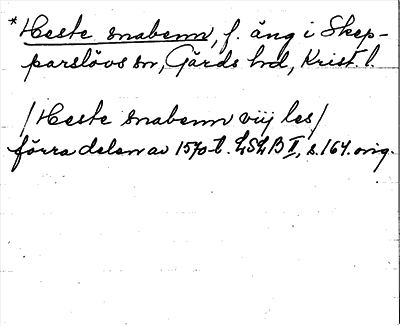 *Heste snabenn, f. äng i Skep-
parslövs sn, Gärds hd, Krist. l.
/Heste snabenn viij les/
förra delen av 1570-t. LSLB II, s. 164. orig.